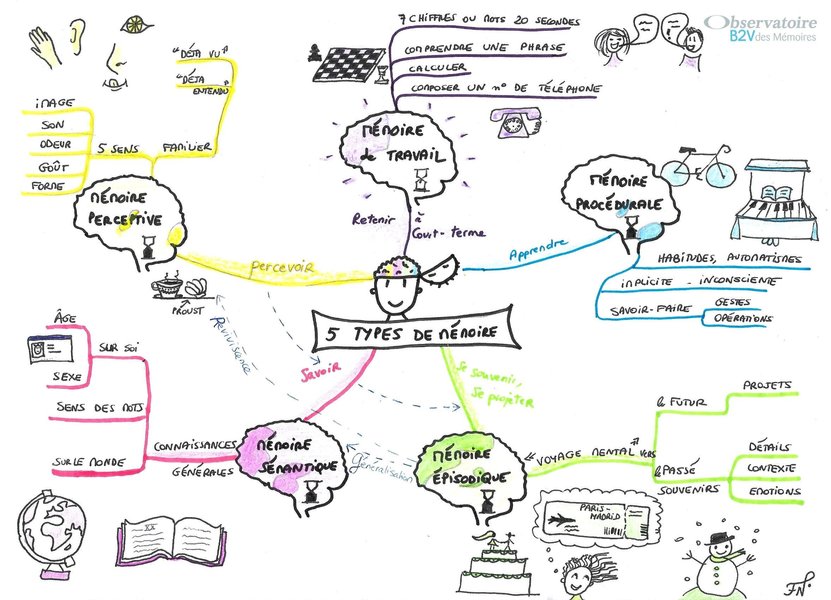 Observatoire
B2V des Mémoires
7 CHIFFRES OU MOTS 20 SECONDES
COMPRENDRE UNE PHRASE
CALCULER
COMPOSER UN N° DE TÉLÉPHONE
MÉMOIRE
de TRAVAIL
Retenir à
Court-terme
"DÉJÀ VU"
"DÉJÀ
ENTENDU"
IMAGE
SON
ODEUR
GOÛT
FORME
5 SENS
FAMILIER
MÉMOIRE
PERCEPTIVE
percevoir
PROUST
MÉMOIRE
PROCÉDURALE
Apprendre
HABITUDES, AUTOMATISMES
IMPLICITE - INCONSCIENTE
SAVOIR-FAIRE
GESTES
OPÉRATIONS
5 TYPES DE MÉMOIRE
Reviviscence
Savoir
Se souvenir,
Se projeter
ÂGE
SUR SOI
SEXE
SENS DES MOTS
SUR LE MONDE
CONNAISSANCES
GÉNÉRALES
MÉMOIRE
SÉMANTIQUE
Généralisation
MÉMOIRE
ÉPISODIQUE
"VOYAGE MENTAL" VERS
le FUTUR
PROJETS
le PASSÉ
SOUVENIRS
DÉTAILS
CONTEXTE
EMOTIONS
PARIS-
MADRID